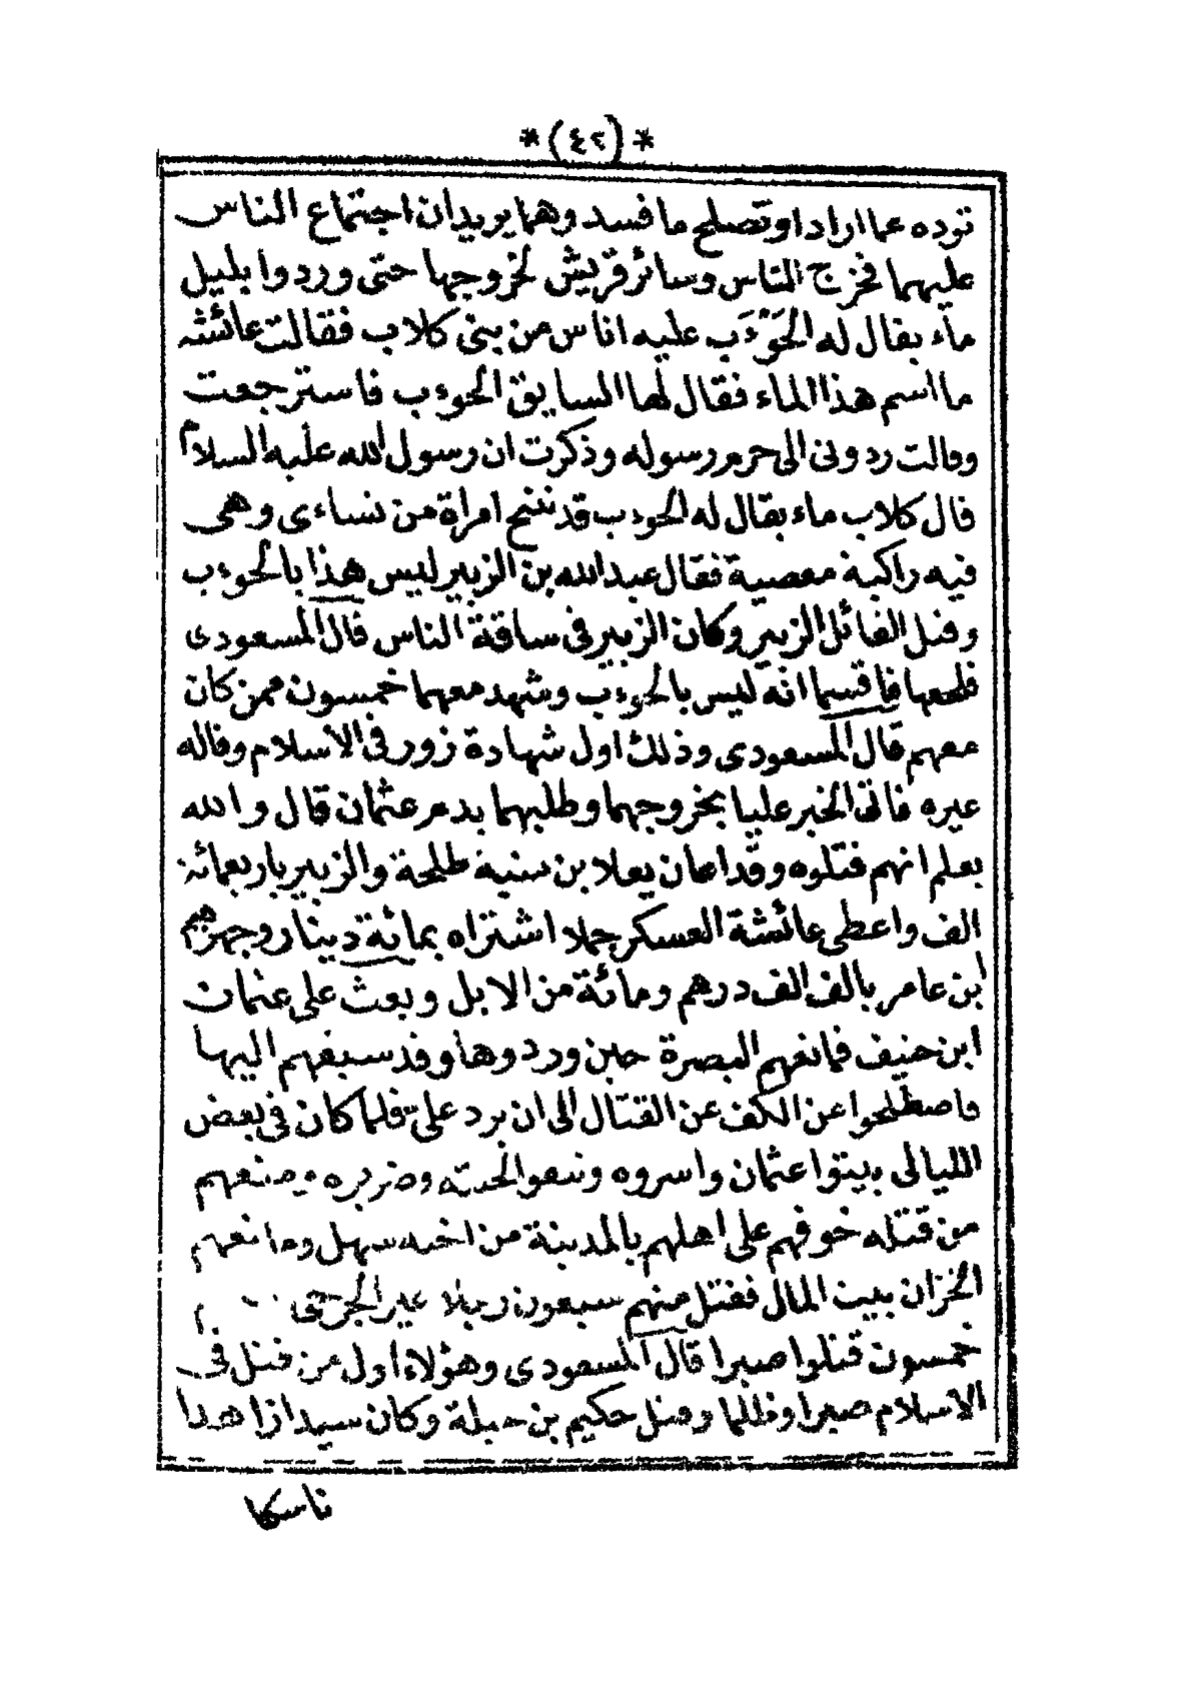 *(٤٢)*
توده عما ارادا وتصلح ما فسد وهما يريدان اجتماع الناس
عليهما فخرج الناس وسائر قريش لخروجها حتى وردوا بليل
ماء يقال له الحَوْءَب عليه اناس من بنى كلاب فقالت عائشة
ما اسم هذا الماء فقال لها السايق الحوءب فاسترجعت
وقالت ردونى الى حرم رسوله وذكرت ان رسول الله عليه السلام
قال كلاب ماء يقال له الحوءب قد تنبح امراة من نساءى وهى
فيه راكبة معصية فقال عبد الله بن الزبير ليس هذا بالحوءب
وقيل القائل الزبير وكان الزبير فى ساقة الناس قال المسعودى
فلحقها فاقسما انه ليس بالحوءب وشهد معهما خمسون ممن كان
معهم قال المسعودى وذلك اول شهادة زور فى الاسلام وقاله
غيره فاتى الخبر عليا بخروجهما وطلبهما بدم عثمان قال والله
يعلم انهم قتلوه وقد اعان يعلا بن منية طلحة والزبير باربعمائة
الف واعطى عائشة العسكر جملا اشتراه بمائة دينار وجهزهم
ابن عامر بالف الف درهم ومائة من الابل وبعث على عثمان
ابن حنيف فمانعهم البصرة حين وردوها وقد سبقهم اليها
فاصطلحوا عن الكف عن القتال الى ان يرد على فلما كان فى بعض
الليالى بيتوا عثمان واسروه ونتفوا لحيته وضربوه ومنعهم
من قتله خوفهم على اهلهم بالمدينة من اخيه سهل ومانعهم
الخزان بيت المال فقتل منهم سبعون رجلا غير الجرحى
خمسون قتلوا صبرا قال المسعودى وهؤلاء اول من قتل فى
الاسلام صبرا وظلما وقتل حكيم بن جبلة وكان سيدا زاهدا
ناسكا